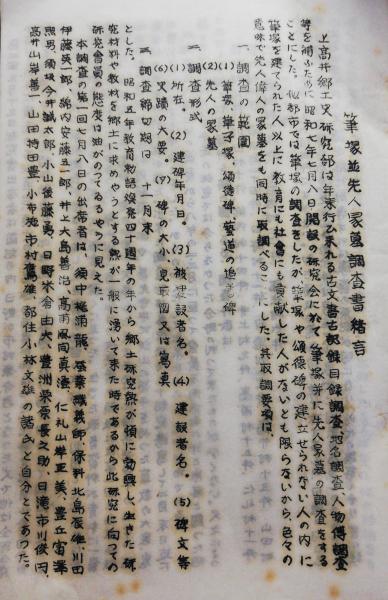 筆塚並先人冢墓調査書緒言
上高井郷土史研究部は年来行ひ来れる古文書古記録目録調査、地名調査、人物傳調査
等を補ふために昭和七年七月八日開設の研究会に於て筆塚并に先人家墓の調査をする
ことにした。他郡市では筆塚の調査をしたが筆塚や頌徳碑の建立せられない人の内に
筆塚を建てられた人以上に教育にも社會にも貢献した人がないとも限らないから、色々の
意味で先人偉人の冢墓をも同時に取調べることにした。其取調要項は、
一、調査の範囲
(1) 筆塚、筆子塚、頌徳碑、藝道の追考碑
(2) 先人の冢墓
二、調査形式
(1) 所在。 (2) 建碑年月日。 (3) 被建設者名。 (4) 建設者名。 (5) 碑文等
(6) 史蹟の大要。 (7) 碑の大小、見取図又は寫真
三、調査締切期は 十一月末
とした。昭和五年教育勅語煥発四十週年の年から郷土研究熱が頓に勃興し、生きた研
究材料や教材を郷土に求めやうとする熱が一般に湧いて来た時であるから此研究に向つての
研究會員の態度は油がのつてゐるやうに見えた。
本調査の第一回七月八日の出席者は、須中梶浦龍、
伊藤英一郎、綿内安藤五一郎、井上大島善治、高甫風間真澄、仁礼山岸正美、豊丘
照男、須坂今井誠太郎、小山後藤勇、日野米倉由夫、豊洲栗原長之助、日滝市川俊円、
高井山岸善一、山田持田豊、小布施市村萬雄、都住小林文雄の諸氏と自分とであつた。